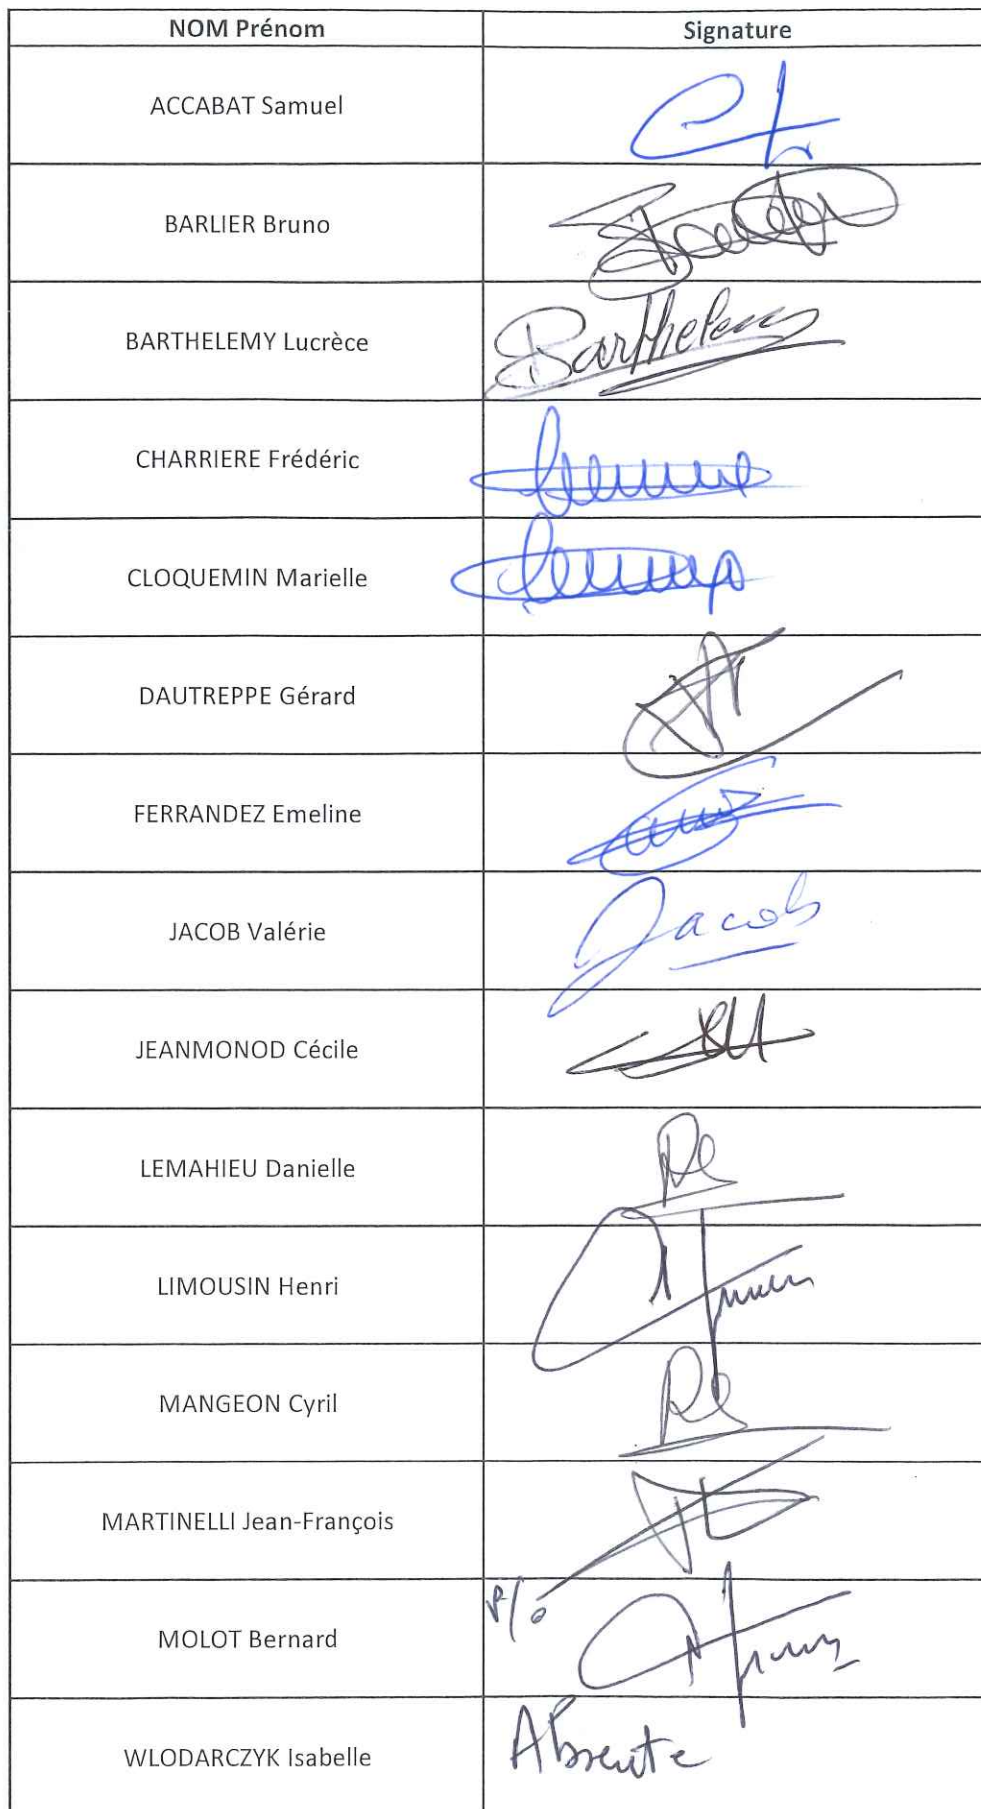 NOM Prénom Signature
ACCABAT Samuel
BARLIER Bruno
BARTHELEMY Lucrèce Barthelemy
CHARRIERE Frédéric
CLOQUEMIN Marielle
DAUTREPPE Gérard
FERRANDEZ Emeline
JACOB Valérie Jacob
JEANMONOD Cécile
LEMAHIEU Danielle
LIMOUSIN Henri
MANGEON Cyril
MARTINELLI Jean-François
MOLOT Bernard P/o
WLODARCZYK Isabelle Absente